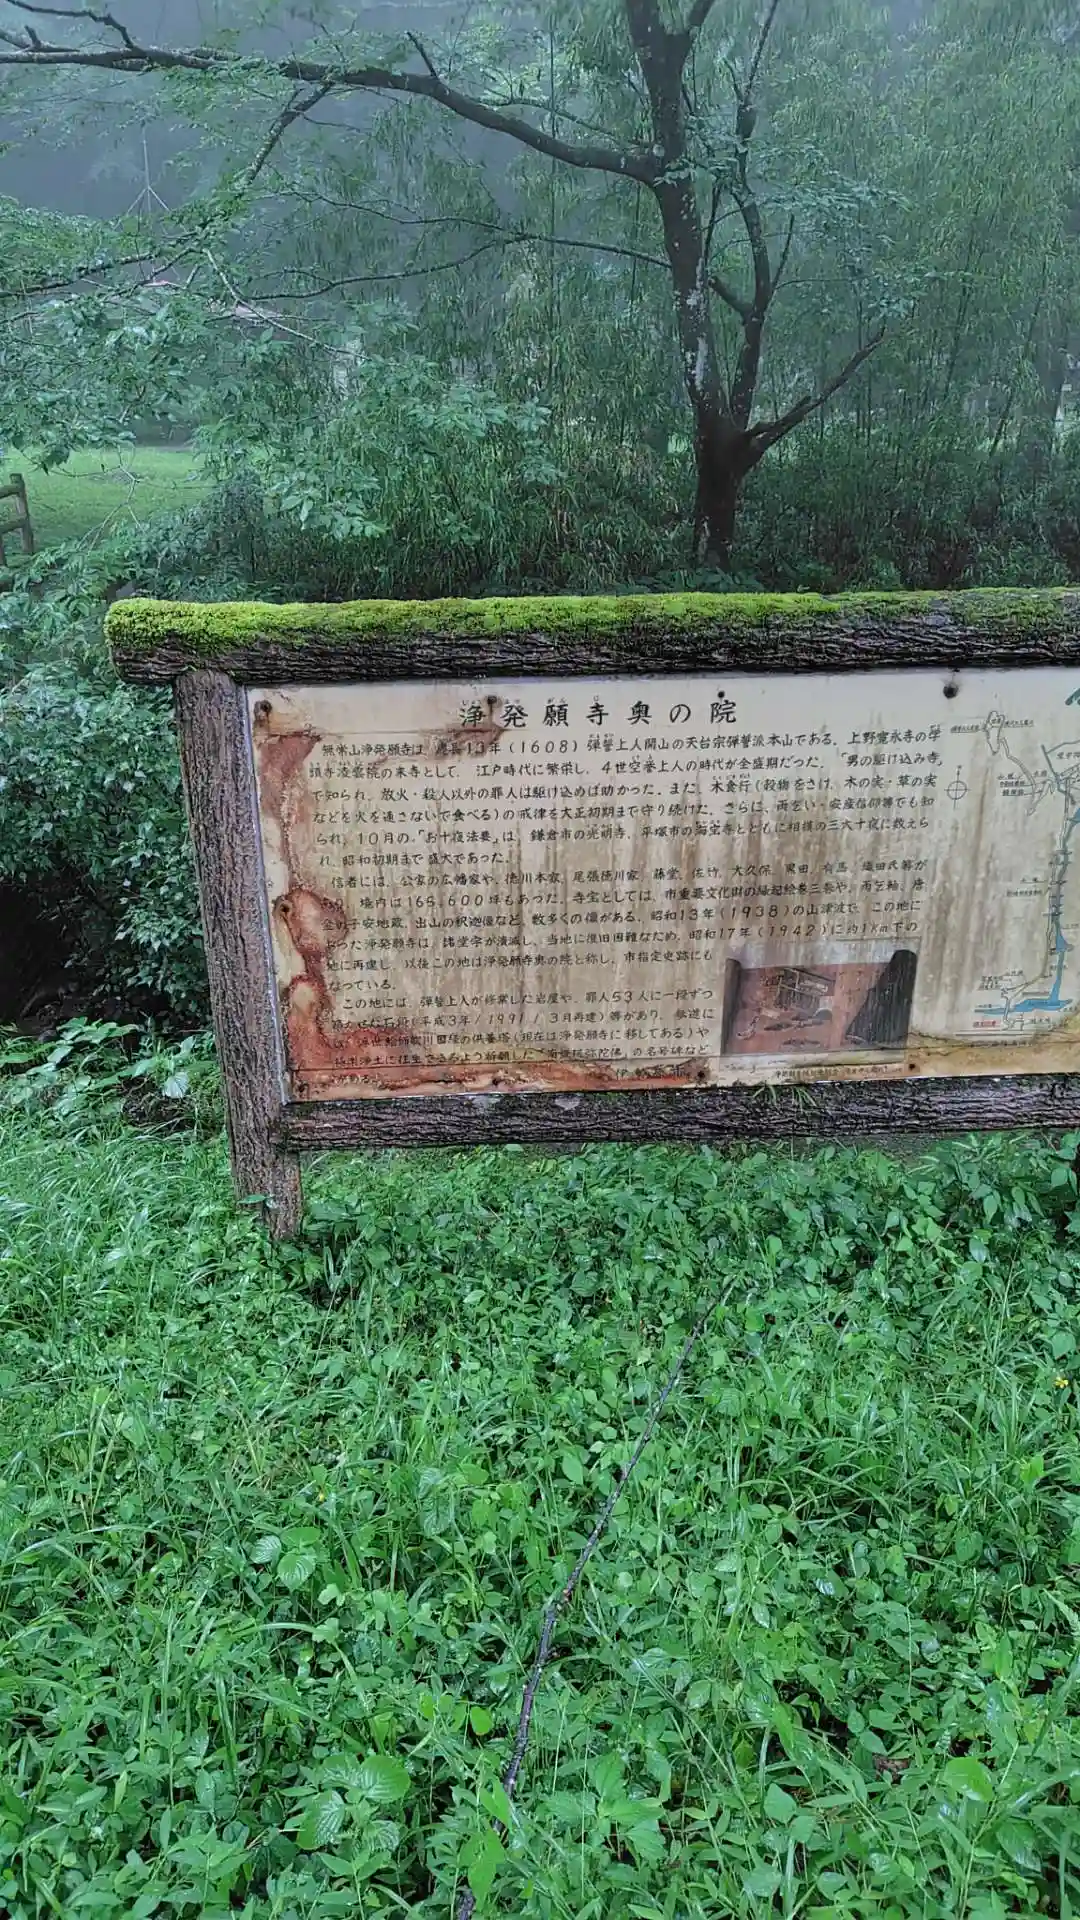 浄発願寺奥の院
無常山浄発願寺は、慶長13年(1608)弾誓上人開山の天台宗弾誓派本山である。上野寛永寺の学
頭寺凌雲院の末寺として、江戸時代に繁栄し、4世空誉上人の時代が全盛期だった。「男の駆け込み寺」
で知られ、放火・殺人以外の罪人は駆け込めば助かった。また、木食行(穀物をさけ、木の実・草の実
などを火を通さないで食べる)の戒律を大正初期まで守り続けた。さらに、雨乞い・安産信仰等でも知
られ、10月の「お十夜法要」は、鎌倉市の光明寺、平塚市の海宝寺とともに相模の三六十夜に数えら
れ、昭和初期まで盛大であった。
信者には、公家の広幡家や、徳川本家、尾張徳川家、藤堂、佐竹、大久保、黒田、有馬、織田氏等が
あり、境内は165,600坪もあった。寺宝としては、市重要文化財の縁起絵巻三巻や、雨乞軸、唐
金の子安地蔵、出山の釈迦像など、数多くの像がある。昭和13年(1938)の山津波で、この地に
あった浄発願寺は、諸堂宇が潰滅し、当地に復旧困難なため、昭和17年(1942)に約1km下の
地に再建し、以後この地は浄発願寺奥の院と称し、市指定史跡にも
なっている。
この地には、弾誓上人が修業した岩屋や、罪人53人に一段ずつ
築かせた石段(平成3年/1991/3月再建)等があり、参道に
は、浮世絵師歌川国経の供養塔(現在は浄発願寺に移してある)や
極楽浄土に往生できるよう祈願した「南無阿弥陀仏」の名号碑など
がある。